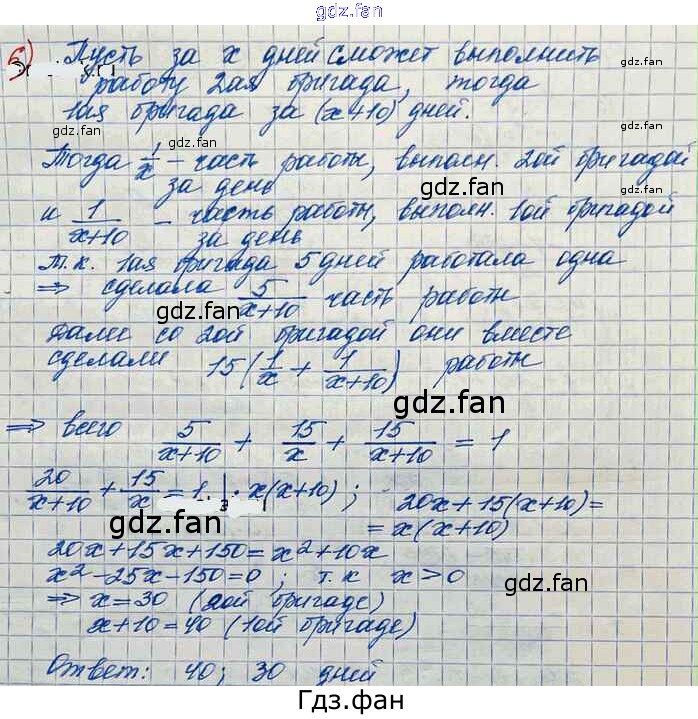 gdz.fan
6) Пусть за x дней сможет выполнить
gdz.fan
работу 2ая бригада, тогда
1ая бригада за (x+10) дней.
gdz.fan
gdz.fan
gdz.fan
Тогда 1/x - часть работы, выполн. 2ой бригадой
за день
gdz.fan
gdz.fan
и 1/(x+10) - часть работы, выполн. 1ой бригадой
за день
gdz.fan
Т.к. 1ая бригада 5 дней работала одна
⇒ сделала 5/(x+10) часть работы
gdz.fan
gdz.fan
Далее со 2ой бригадой они вместе
сделали 15(1/x + 1/(x+10)) работы
gdz.fan
gdz.fan
⇒ всего 5/(x+10) + 15/x + 15/(x+10) = 1
gdz.fan
20/(x+10) + 15/x = 1 | · x(x+10) ; 20x+15(x+10)=
= x(x+10)
gdz.fan
gdz.fan
20x+15x+150=x²+10x
x²-25x-150=0 ; т.к x>0
gdz.fan
⇒ x=30 (2ой бригаде)
x+10=40 (1ой бригаде)
gdz.fan
gdz.fan
Ответ: 40; 30 дней
gdz.fan
Гдз.фан